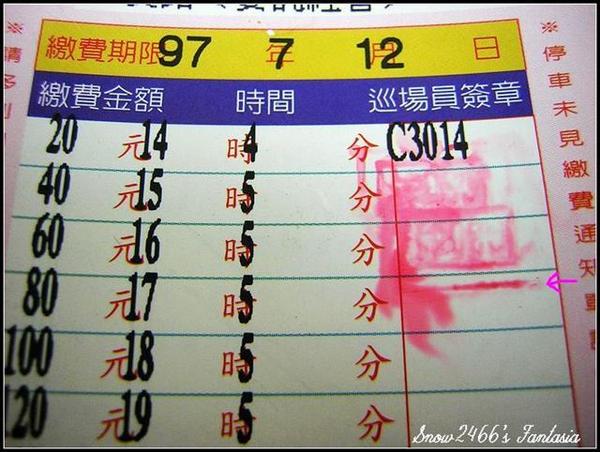 繳費期限 97 年 7 月 12 日
繳費金額 時間 巡場員簽章
20 元 14 時 4 分 C3014
40 元 15 時 5 分
60 元 16 時 5 分
80 元 17 時 5 分
100 元 18 時 5 分
120 元 19 時 5 分
※停車未見繳費通知單請
※請多利
Snow2466's Fantasia